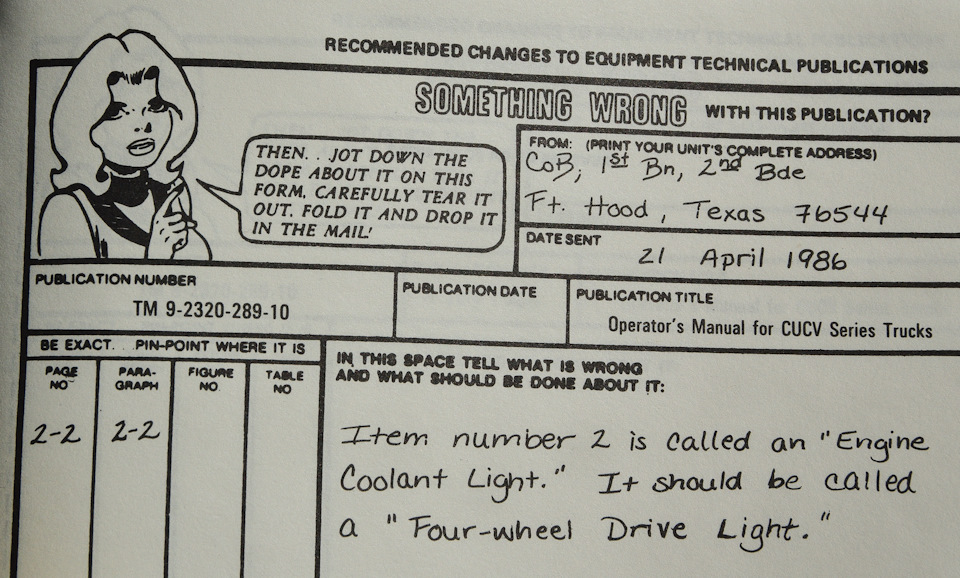 RECOMMENDED CHANGES TO EQUIPMENT TECHNICAL PUBLICATIONS
SOMETHING WRONG WITH THIS PUBLICATION?
THEN. . JOT DOWN THE
DOPE ABOUT IT ON THIS
FORM, CAREFULLY TEAR IT
OUT, FOLD IT AND DROP IT
IN THE MAIL!
FROM: (PRINT YOUR UNIT'S COMPLETE ADDRESS)
CoB, 1st Bn, 2nd Bde
Ft. Hood, Texas 76544
DATE SENT
21 April 1986
PUBLICATION NUMBER
TM 9-2320-289-10
PUBLICATION DATE
PUBLICATION TITLE
Operator's Manual for CUCV Series Trucks
BE EXACT. . .PIN-POINT WHERE IT IS
PAGE
NO
PARA-
GRAPH
FIGURE
NO.
TABLE
NO
2-2
2-2
IN THIS SPACE TELL WHAT IS WRONG
AND WHAT SHOULD BE DONE ABOUT IT:
Item number 2 is called an "Engine
Coolant Light." It should be called
a "Four-wheel Drive Light."